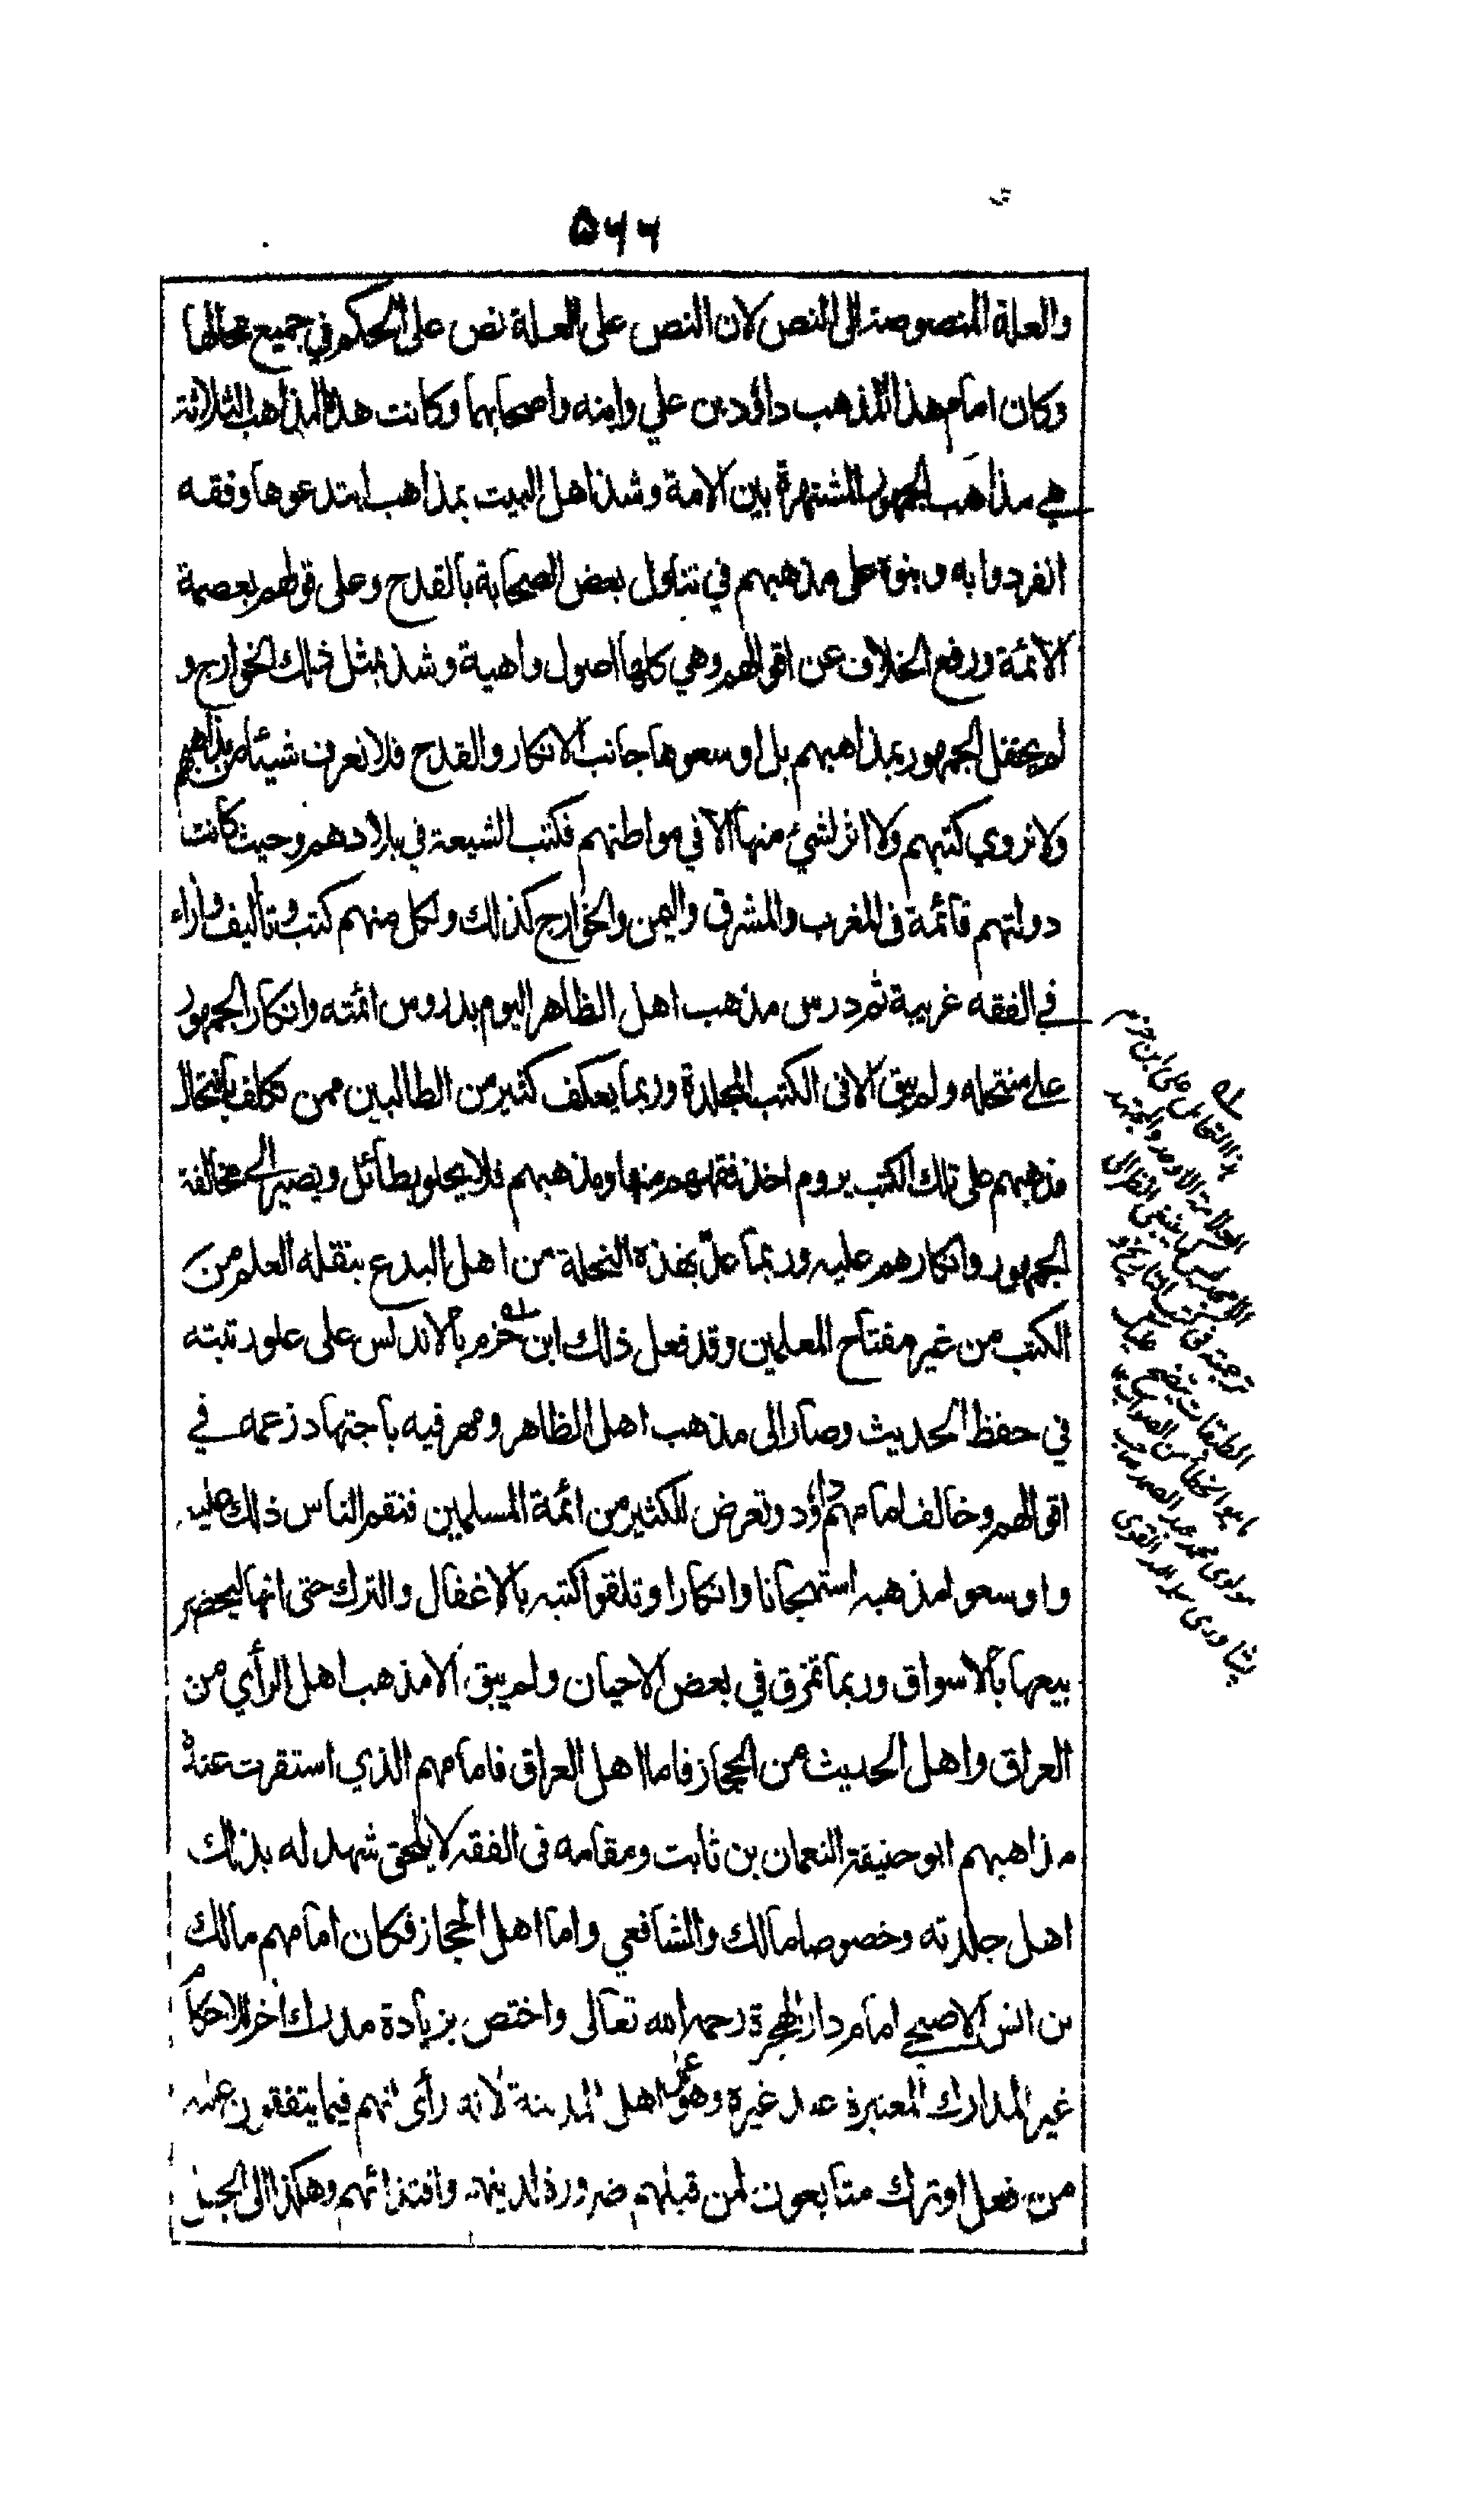 ۵۶۶
والعلة المنصوصة الى النص لان النص على العلة نص على الحكم في جميع محالها
وكان امام هذا المذهب داؤد بن علي وابنه واصحابهما وكانت هذه المذاهب الثلاثة
هي مذاهب الجمهور المشتهرة بين الامة وشذ اهل البيت بمذاهب ابتدعوها وفقه
انفردوا به وبنوه على مذهبهم في تناول بعض الصحابة بالقدح وعلى قولهم بعصمة
الائمة ورفع الخلاف عن اقوالهم وهي كلها اصول واهية وشذ بمثل ذلك الخوارج و
لم يحفل الجمهور بمذاهبهم بل اوسعوها جانب الانكار والقدح فلا نعرف شيئا من مذاهبهم
ولا نروي كتبهم ولا اثر لشئ منها الا في مواطنهم فكتب الشيعة في بلادهم وحيث كانت
دولتهم قائمة في المغرب والمشرق واليمن والخوارج كذلك ولكل منهم كتب وتأليف واراء
في الفقه غريبة ثم درس مذهب اهل الظاهر اليوم بدروس ائمته وانكار الجمهور
على منتحله ولم يبق الا في الكتب المجلدة وربما يعكف كثير من الطالبين ممن تكلف بانتحال
مذهبهم على تلك الكتب يروم اخذ فقههم منها ومذهبهم فلا يحلو بطائل ويصير الى مخالفة
الجمهور وانكارهم عليه وربما عدّ بهذه النحلة من اهل البدع بنقله العلم من
الكتب من غير مفتاح المعلمين وقد فعل ذلك ابن حزم بالاندلس على علو رتبته
في حفظ الحديث وصار الى مذهب اهل الظاهر ومهر فيه باجتهاد زعمه في
اقوالهم وخالف امامهم داؤد وتعرض للكثير من ائمة المسلمين فنقم الناس ذلك عليه
واوسعوا مذهبه استهجانا وانكارا وتلقوا كتبه بالاغفال والترك حتى انها ليحضر
بيعها بالاسواق وربما تمزق في بعض الاحيان ولم يبق الا مذهب اهل الرأي من
العراق واهل الحديث من الحجاز فاما اهل العراق فامامهم الذي استقرت عنده
مذاهبهم ابو حنيفة النعمان بن ثابت ومقامه في الفقه لا يلحق شهد له بذلك
اهل جلدته وخصوصا مالك والشافعي واما اهل الحجاز فكان امامهم مالك
بن انس الاصبحي امام دار الهجرة رحمه الله تعالى واختص بزيادة مدرك اخر للاحكام
غير المدارك المعتبرة عند غيره وهو عمل اهل المدينة لانه رأى انهم فيما يتفقون عليه
من فعل او ترك متابعون لمن قبلهم ضرورة لدينهم واقتدائهم وهكذا الى الجيل